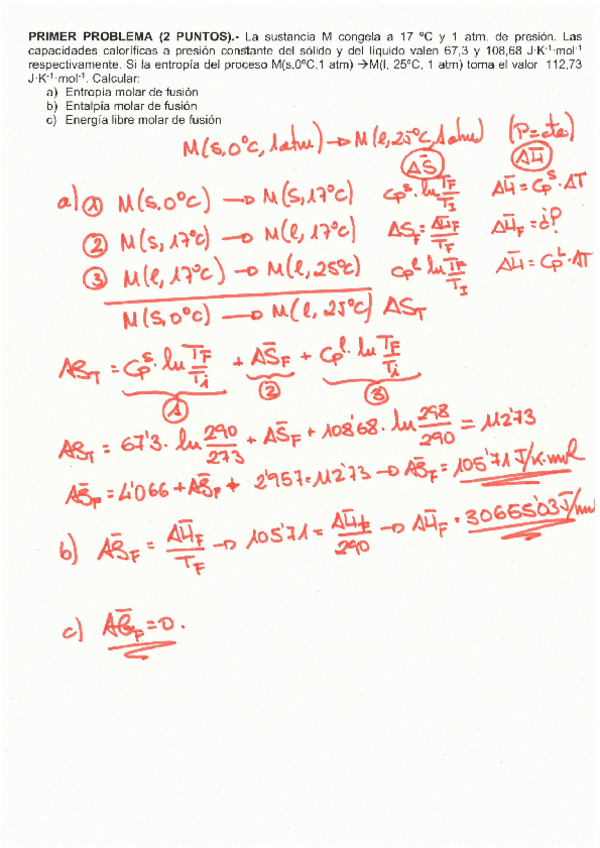 PRIMER PROBLEMA (2 PUNTOS).- La sustancia M congela a 17 ºC y 1 atm. de presión. Las
capacidades caloríficas a presión constante del sólido y del líquido valen 67,3 y 108,68 J·K⁻¹·mol⁻¹
respectivamente. Si la entropía del proceso M(s,0ºC,1 atm) →M(l, 25ºC, 1 atm) toma el valor 112,73
J·K⁻¹·mol⁻¹. Calcular:
a) Entropía molar de fusión
b) Entalpía molar de fusión
c) Energía libre molar de fusión
M(s,0ºC, 1atm) → M(l,25ºC,1atm) (P=cte)
ΔS̄ ΔH̄
a) ① M(s,0ºC) → M(s,17ºC) Cpˢ·ln TF/TI ΔH̄ = Cpˢ·ΔT
② M(s,17ºC) → M(l,17ºC) ΔSF = ΔH̄F/TF ΔH̄F = ¿?
③ M(l,17ºC) → M(l,25ºC) Cpᴸ ln TF/TI ΔH̄ = Cpᴸ·ΔT
M(s,0ºC) → M(l,25ºC) ΔST
ΔST = Cpˢ·ln TF/Ti + ΔS̄F + Cpˡ·ln TF/Ti
① ② ③
ΔST = 67'3·ln 290/273 + ΔS̄F + 108'68·ln 298/290 = 112'73
ΔS̄F = 4'066 + ΔS̄F + 2'957 = 112'73 → ΔS̄F = 105'71 J/K·mol
b) ΔS̄F = ΔH̄F/TF → 105'71 = ΔH̄F/290 → ΔH̄F = 30655'03 J/mol
c) ΔḠF = 0.